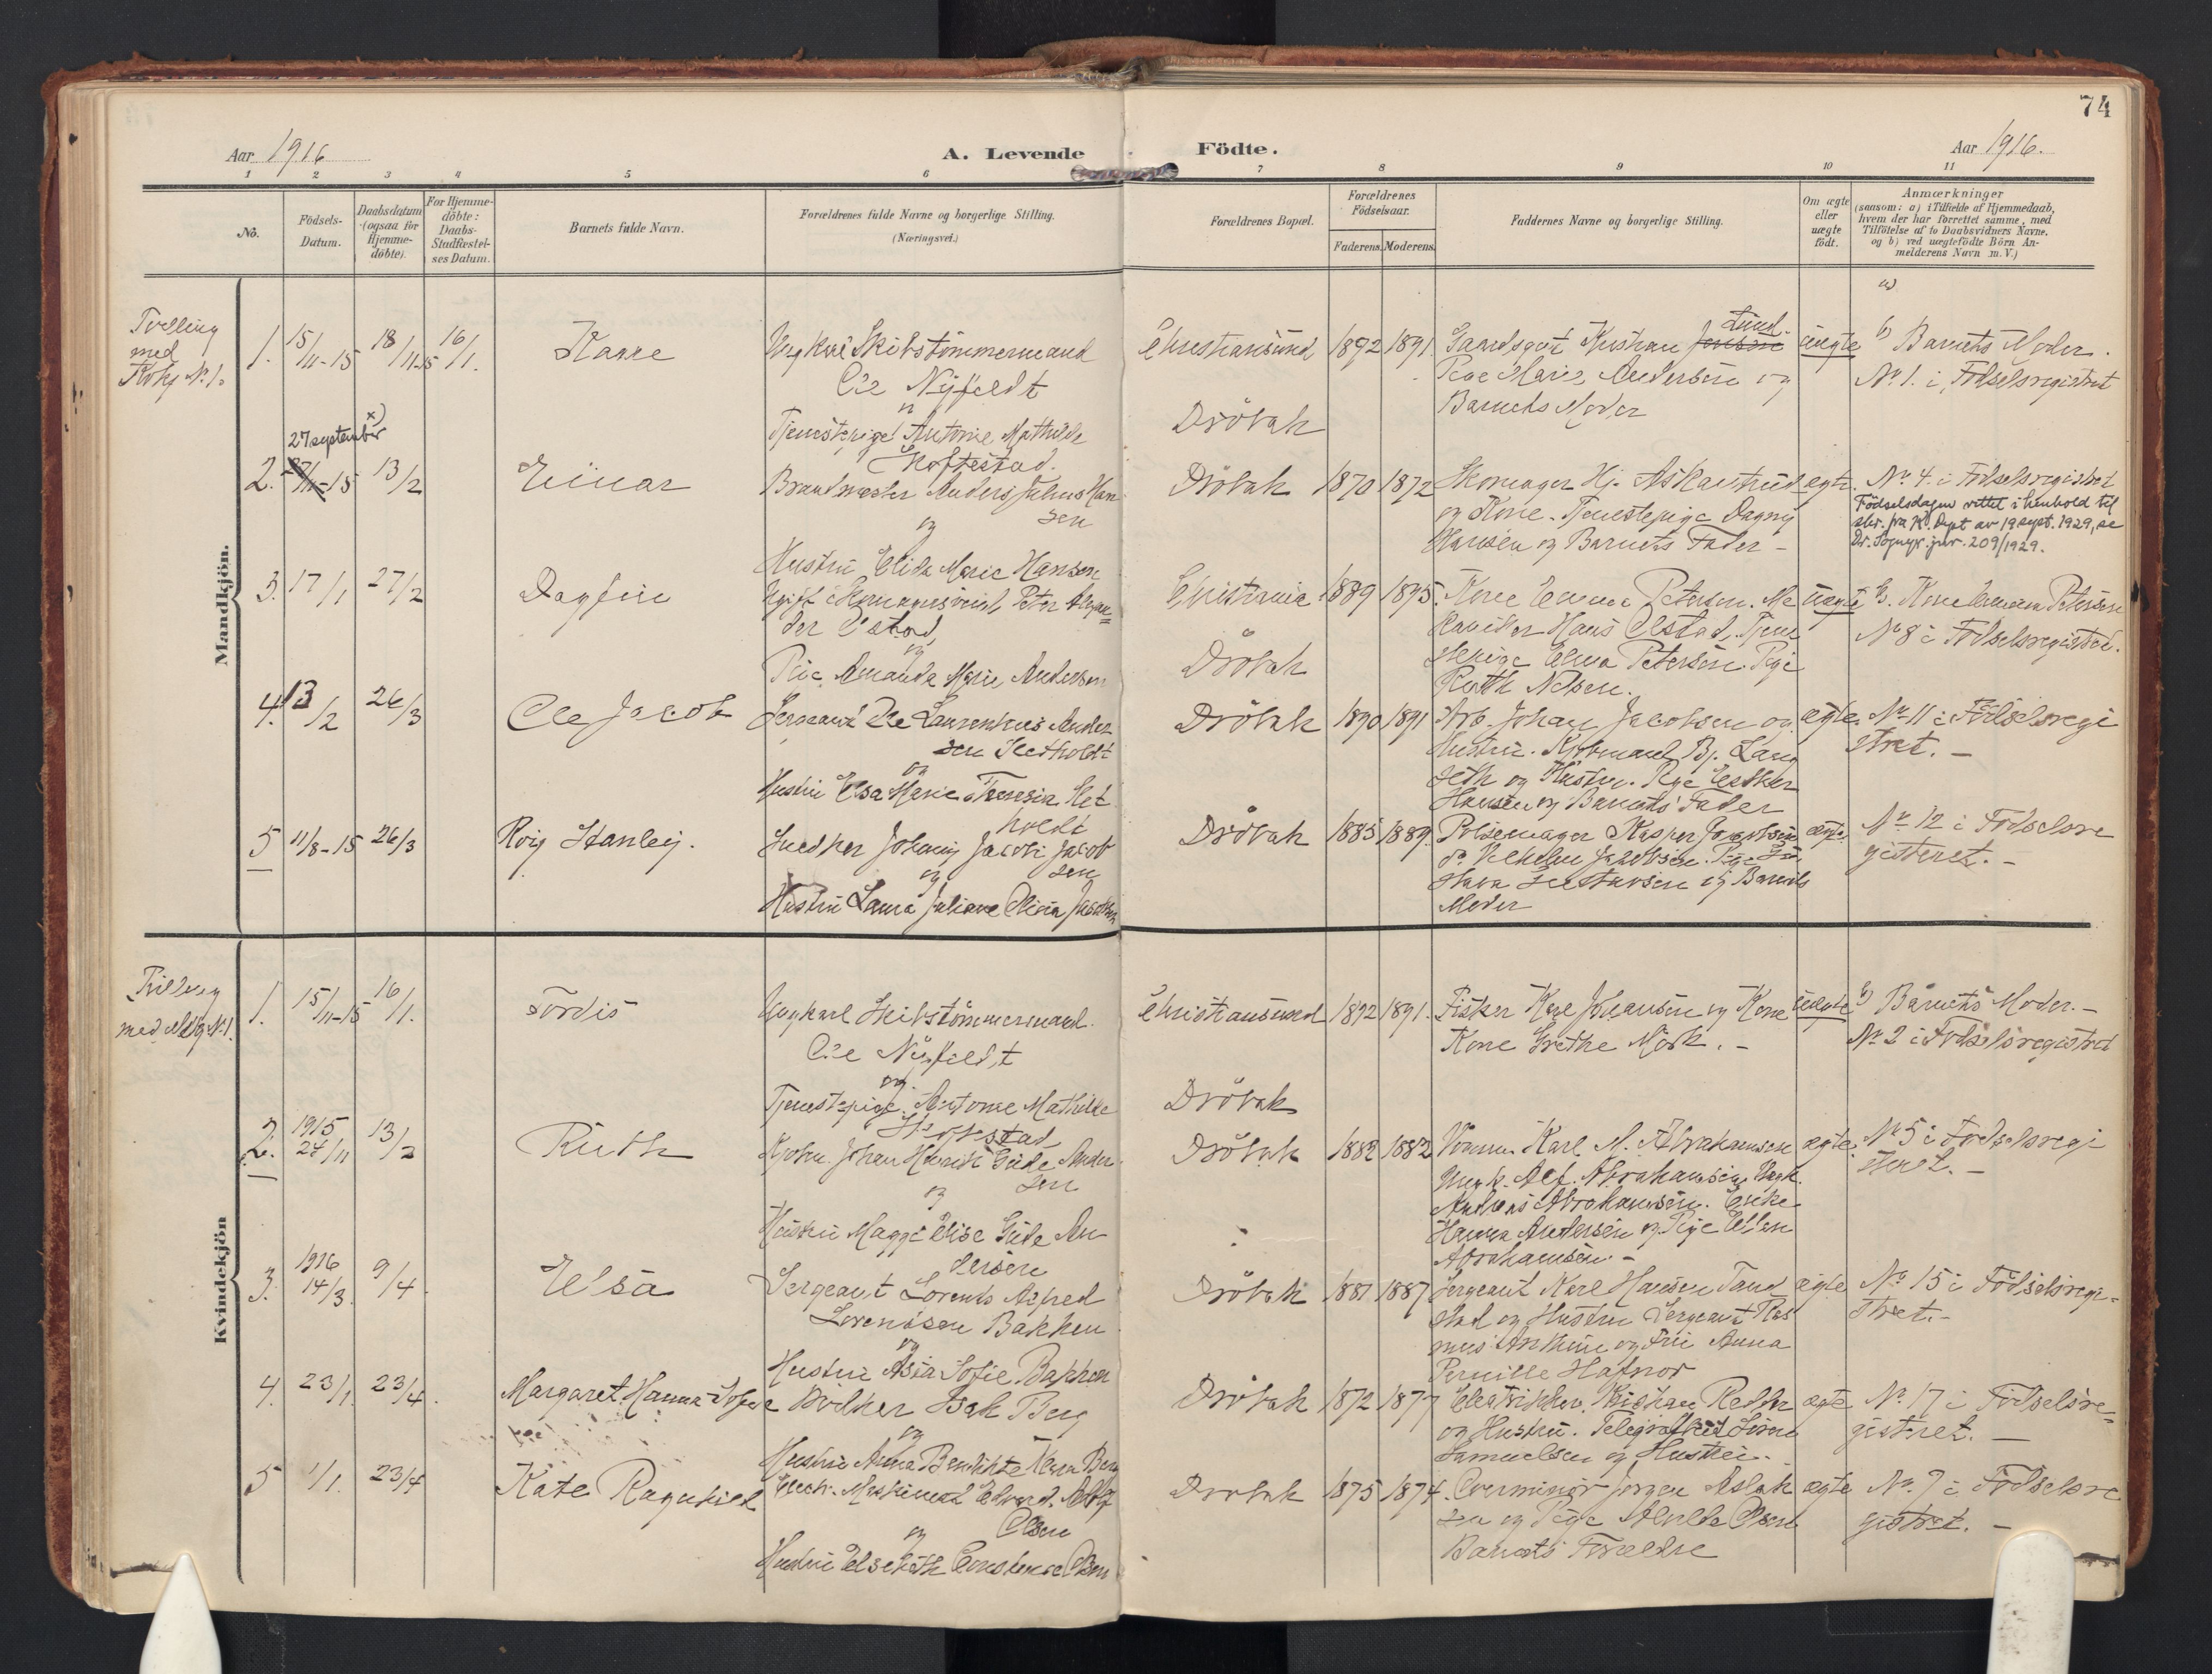 74
Aar 1916
A. Levende Födte.
Aar 1916.
1 2 3 4 5 6 7 8 9 10 11
No.
Födsels-
Datum.
Daabsdatum
(ogsaa for
Hjemme-
döbte).
For Hjemme-
döbte:
Daabs-
Stadfæstel-
ses Datum.
Barnets fulde Navn.
Forældrenes fulde Navne og borgerlige Stilling.
(Næringsvei.)
Forældrenes Bopæl.
Forældrenes
Födselsaar.
Faderens. Moderens.
Faddernes Navne og borgerlige Stilling.
Om ægte
eller
uægte
födt.
Anmærkninger
(saasom: a) i Tilfælde af Hjemmedaab,
hvem der har forrettet samme, med
Tilföielse af to Daabsvidners Navne.
og b) ved uægtefödte Börn An-
melderens Navn m. V.)
Mandkjön.
Tvilling
med
1. 15/11-15 18/11-15 16/1. Kaare
Ungkarl Skibstömmermand
Ole Nyfeldt
og
Tjenestepige Antonie Mathilde
Skoftestad.
Christiansund 1892 1891.
Dröbak
Lund
Pige Marie Andersen og
Barnets Moder
uægte
b) Barnets Moder.
No. 1. i Födselsregistret
27 september x)
2. 13/2 Einar
Brandmester Anders Julius Han
sen
og
Hustru Elida Marie Hansen
Dröbak 1870 1872
Skomager Hj. Askautrud
og Kone. Tjenestepige Dagny
Hansen og Barnets Fader -
ægte.
No. 4. i Födselsregistret
Födselsdagen rettet i henhold til
skr. fra K. Dept av 19 sept. 1929, se
Dr. Sognepr. jnr. 209/1929.
3. 17/1 27/2 Dagfin
og
Pige Amanda Marie Andersen
Christiania 1889 1895.
Dröbak
Kone Emma Petersen.
Hans Olstad, Tjene
stepige Elna Petersen. Pige
Ruth Nelsen.
uægte
b. Kone Emma Petersen
No 8 i Födselsregistret.
4. 13/2 26/3 Ole Jacob
Sergeant Ole Laurentius Ander
sen Sletholdt
og
Hustru Elsa Marie Theresia Slet
holdt
Dröbak 1890 1891
Arb. Johan Jacobsen og
Hustru. Kjöbmand Bj. Lang
seth og Hustru. Pige Esther
Hansen og Barnets Fader
ægte.
No 11 i Födselsregi
stret. -
5 11/8-15 26/3 Roiy Stanley.
Snedker Johan Jacobi Jacob
sen
og
Hustru Laura Juliane Olivia Jacobsen
Dröbak 1885 1889.
Pölsemager Kasper Jacobsen
do Vilhelm Jacobsen. Pige Gu
stava Gustavsen og Barnets
Moder
ægte.
No 12 i Födselsre
gistret. -
Kvindekjön
Tvilling
1. 15/11-15 16/1. Tordis
Ungkarl Skibstömmermand.
Ole Nyfeldt
og
Tjenestepige Antonie Mathilde
Skoftestad
Christiansund 1892 1891.
Dröbak
Fisker Karl Johansen og Kone
Kone Grethe Mörk. -
uægte
b) Barnets Moder. -
No 2 i Födselsregistret
2. 1915 24/11 13/2 Ruth
Kjöbm. Johan Henrik Gude Ander
sen
og
Hustru Maggi Elise Gude An
dersen
Dröbak 1882 1882
Karl M. Abrahamsen
Ungk. Alf. Abrahamsen, Ungk.
Andreas Abrahamsen. Enke
Hanna Andersen og Pige Ellen
Abrahamsen. -
ægte.
No 5 i Födselsregi
stret. -
3. 1916 14/3 9/4. Elsa
Sergeant Lorents Alfred
Lorentsen Bakken
og
Hustru Asta Sofie Bakken
Dröbak 1881 1887
Sergeant Karl Hansen Tand
stad og Hustru Sergeant Ras
mus Anthun og Fru Anna
Pernille Hafnor
ægte
No 15 i Födselsregi-
stret. -
4. 23/1. 23/4. Margaret Hanna Sofie
Bödker Isak Berg
og
Hustru Anna Benedikte Berg
Dröbak 1872 1877
Elektriker Kristian
og Hustru.
Samuelsen og Hustru.
ægte
No 17 i Födselsre-
gistret. -
5 1/1. 23/4 Kate Ragnhild
Elektr. Maskinist Edvard Adolf
Olsen
og
Hustru Elsebeth Constance Olsen
Dröbak 1875 1874.
Overminör Jörgen Aslak
sen og Pige Alvilde Olsen
Barnets Forældre
ægte
No. 7 i Födselsre
gistret. -